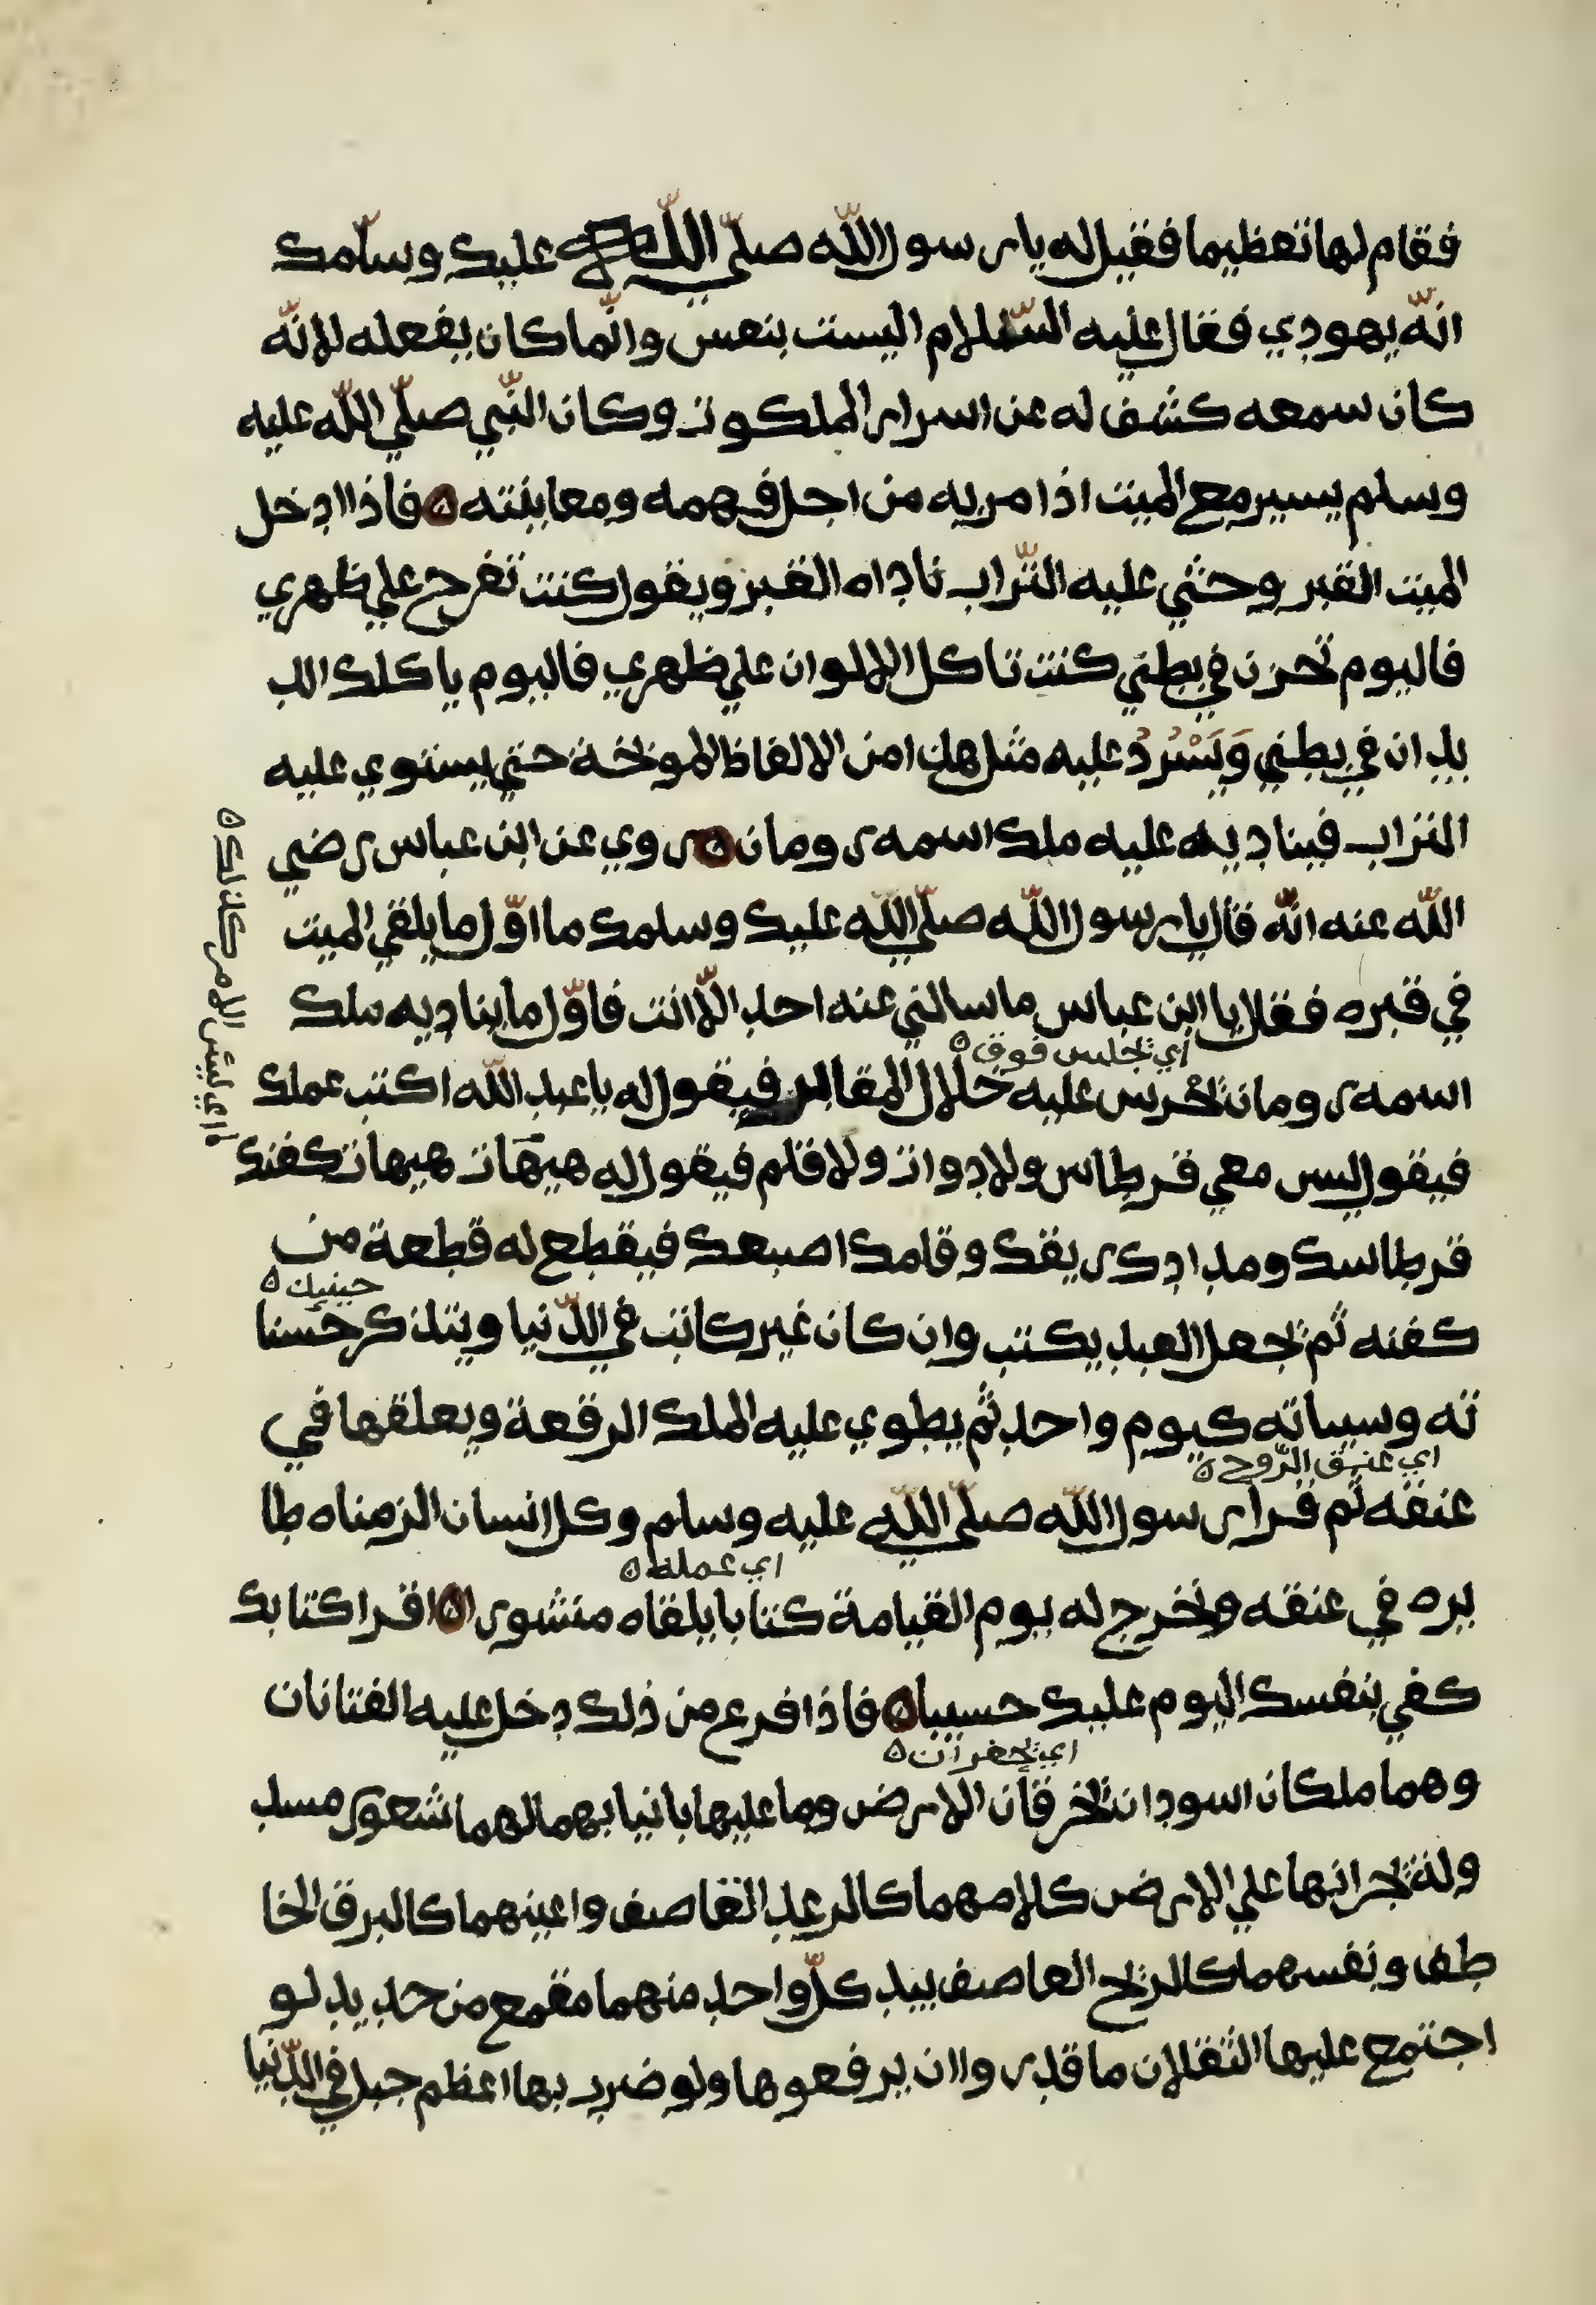 فقام لها تعظيما فقيل له يا رسول الله صلّي اللّه عليك وسلّمك
انّه يهودي فقال عليه السّلام اليست بنفس وانّما كان يفعله لانّه
كان سمعه كشف له عن اسرار الملكوت وكان النّبي صلّي اللّه عليه
وسلم يسير مع الميت اذا مر به من اجل فهمه ومعاينته ۞ فاذا ادخل
الميت القبر وحثي عليه التّراب ناداه القبر ويقول كنت تفرح علي ظهري
فاليوم تحزن في بطني كنت تاكل الالوان علي ظهري فاليوم ياكلك الد
يدان في بطني وَيَسْرُدُ عليه مثل هذا من الالفاظ الموبخة حتي يستوي عليه
التراب فيناديه عليه ملك اسمه رومان ۞ روي عن ابن عباس رضي
اللّه عنه انّه قال يا رسول اللّه صلّي اللّه عليك وسلمك ما اوّل ما يلقي الميت
في قبره فقال يا ابن عباس ما سالني عنه احد الّا انت فاوّل ما يناديه ملك
اي يجلس فوق ه
اسمه رومان يخرس عليه خلال المقابر فيقول له يا عبد اللّه اكتب عملك
فيقول ليس معي قرطاس ولا دوات ولا قلم فيقول له هيهات هيهات كفنك
قرطاسك ومدادك ريقك وقلمك اصبعك فيقطع له قطعة من
حينيذ ه
كفنه ثم يجعل العبد يكتب وان كان غير كاتب في الدّنيا ويتذكر حسنا
ته وسيباته كيوم واحد ثم يطوي عليه الملك الرقعة ويعلقها في
اي عنق الرّوح ه
عنقه ثم قرا رسول اللّه صلّي اللّه عليه وسلم وكل انسان الزمناه طا
اي عمله ه
يره في عنقه ونخرج له يوم القيامة كتابا يلقاه منشورا ۞ اقرا كتابك
كفي بنفسك اليوم عليك حسيبا ۞ فاذا فرع من ذلك دخل عليه الفتانان
اي يحفران ه
وهما ملكان اسودان يخرقان الارض وما عليها بانيابهما لهما شعور مسد
ولة يجرانها علي الارض كلامهما كالرعد القاصف واعينهما كالبرق الخا
طف ونفسهما كالريح العاصف بيد كلّ واحد منهما مقمع من حديد لو
اجتمع عليها الثقلان ما قدروا ان يرفعوها ولو ضرب بها اعظم جبل في الدّنيا
اي ليس الامر كذلك ه